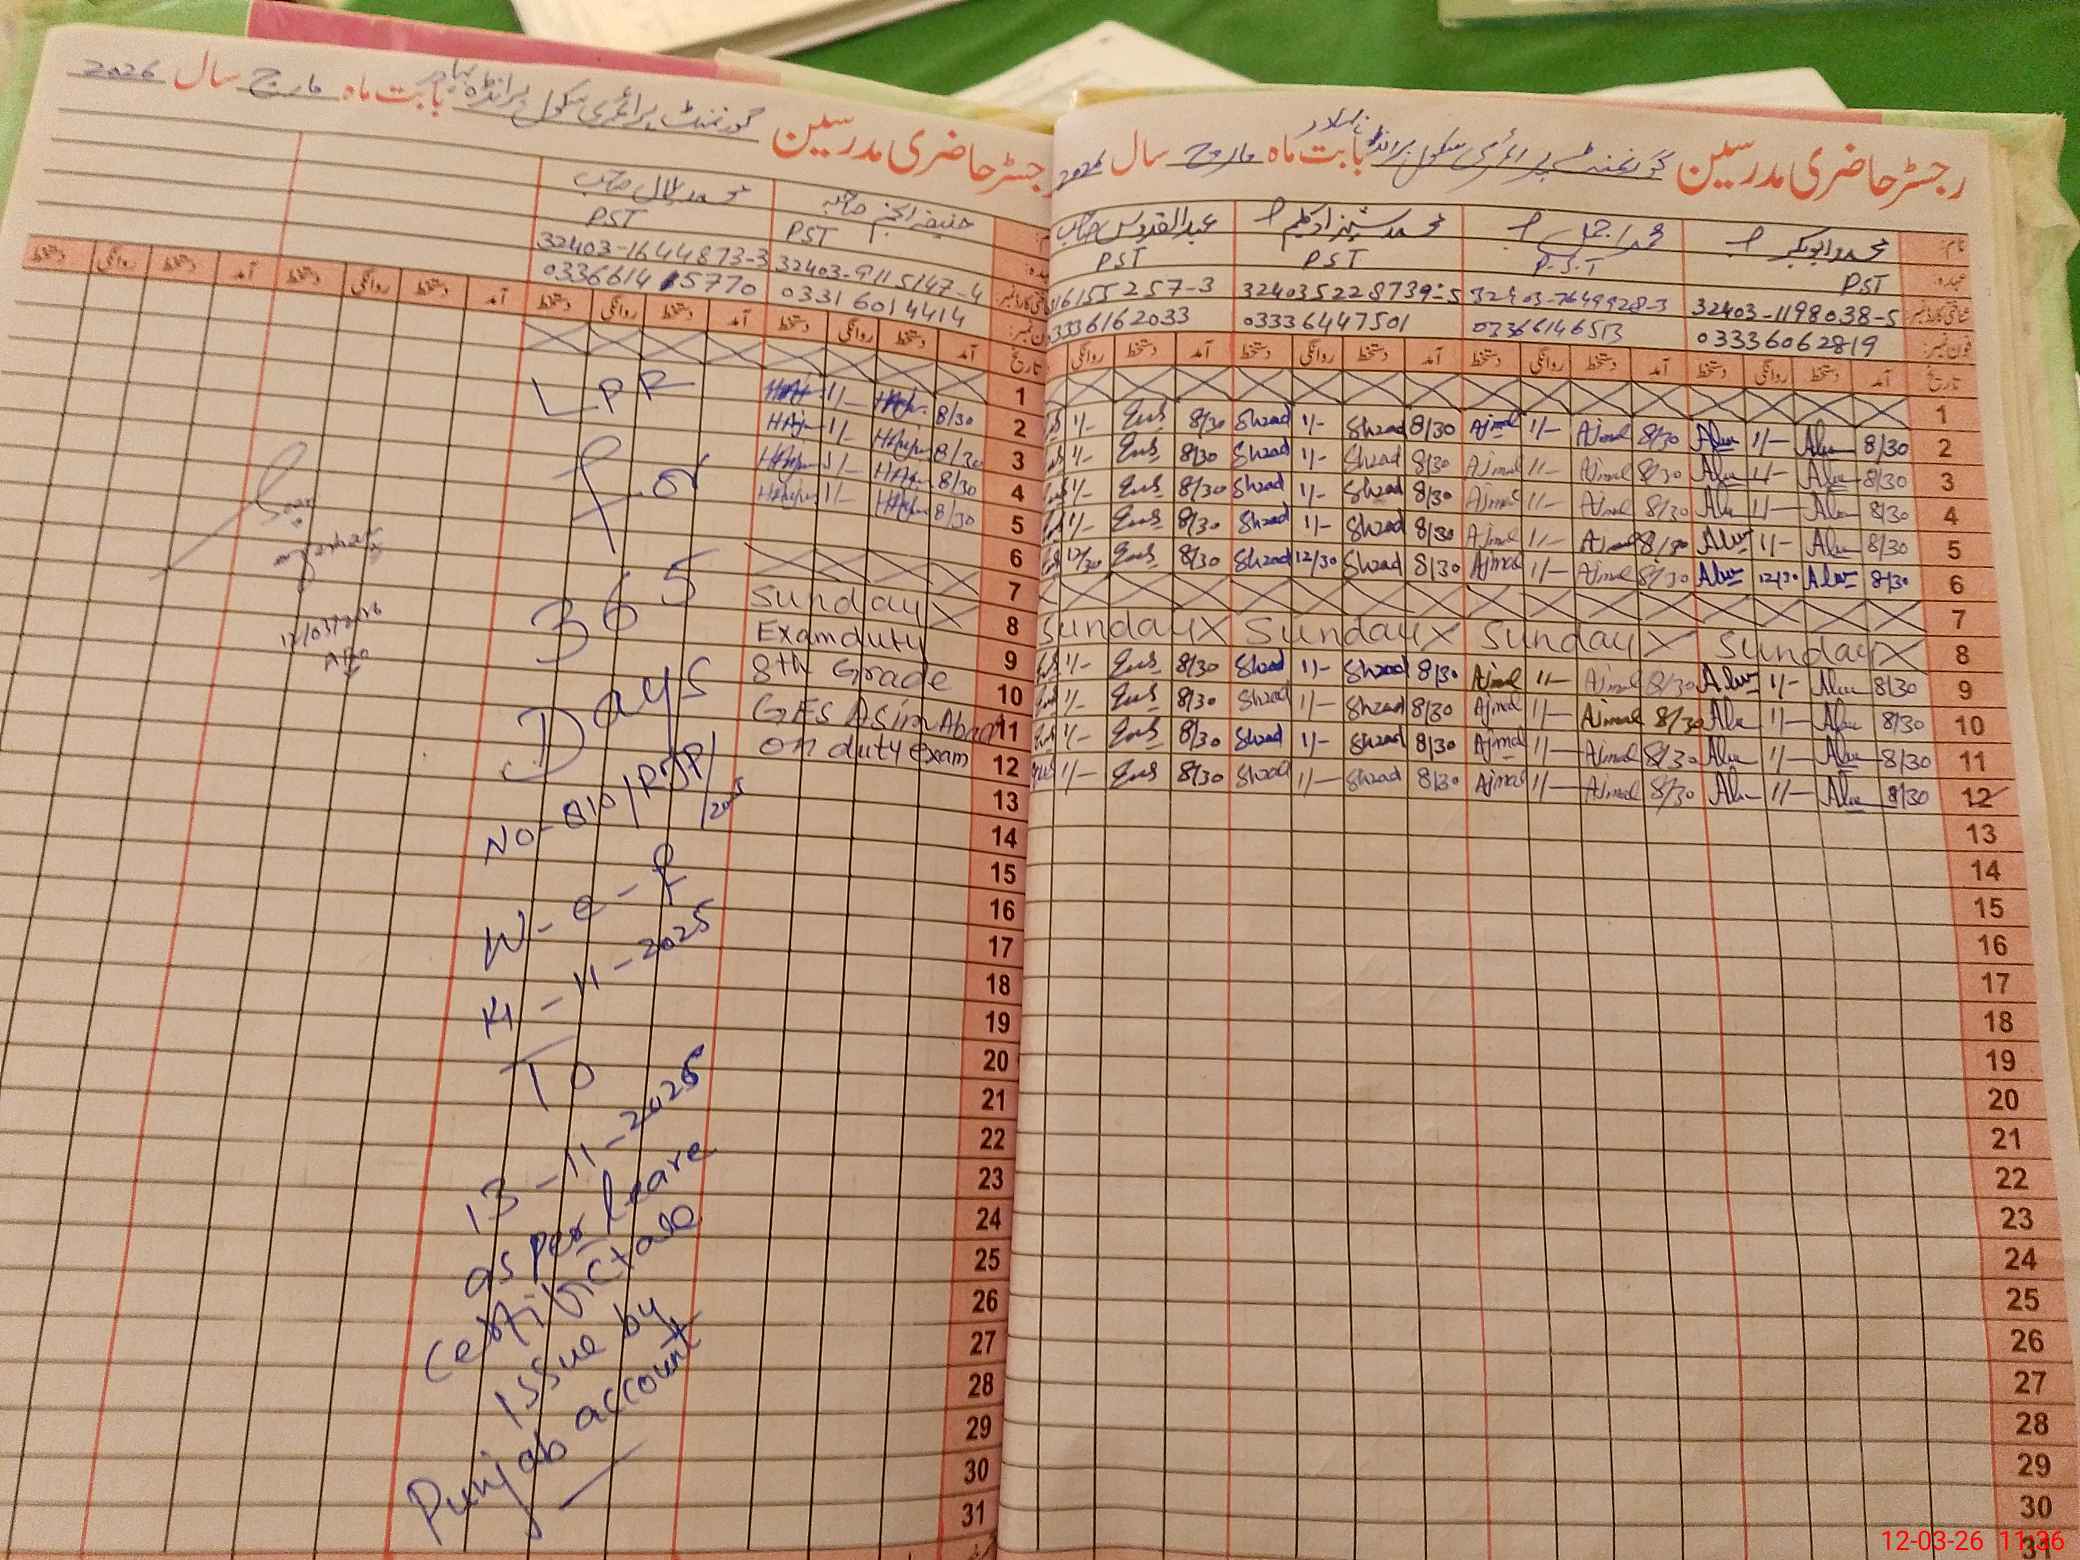 رجسٹر حاضری مدرسین گورنمنٹ پرائمری سکول بابت ماہ مارچ سال 2026
نام:
محمد ابوبکر
محمد اجمل
محمد شہزاد کلیم
عبدالقدوس صاحب
عہدہ:
PST
P.S.T
PST
PST
شناختی کارڈ نمبر:
32403-1198038-5
32403-7649928-3
3240352287395
6155257-3
فون نمبر:
03336062819
03366146513
03336447501
03336162033
تاریخ آمد دستخط روانگی دستخط آمد دستخط روانگی دستخط آمد دستخط روانگی دستخط آمد دستخط روانگی
1
2 8/30 1/- Ajmal 8/30 Ajmal 1/- Shzad 8/30 Shzad 1/- 8/30 1/-
3 8/30 1/- Ajmal 8/30 Ajmal 1/- Shzad 8/30 Shzad 1/- 8/30 1/-
4 8/30 1/- Ajmal 8/30 Ajmal 1/- Shzad 8/30 Shzad 1/- 8/30 1/-
5 8/30 1/- Ajmal 8/30 Ajmal 1/- Shzad 8/30 Shzad 1/- 8/30 1/-
6 8/30 12/30 Ajmal 8/30 Ajmal 1/- Shzad 8/30 Shzad 12/30 8/30 12/30
7
8 Sunday Sunday Sunday Sunday
9 8/30 1/- Ajmal 8/30 Ajmal 1/- Shzad 8/30 Shzad 1/- 8/30 1/-
10 8/30 1/- Ajmal 8/30 Ajmal 1/- Shzad 8/30 Shzad 1/- 8/30 1/-
11 8/30 1/- Ajmal 8/30 Ajmal 1/- Shzad 8/30 Shzad 1/- 8/30 1/-
12 8/30 1/- Ajmal 8/30 Ajmal 1/- Shzad 8/30 Shzad 1/- 8/30 1/-
13
14
15
16
17
18
19
20
21
22
23
24
25
26
27
28
29
30
31
رجسٹر حاضری مدرسین گورنمنٹ پرائمری سکول بابت ماہ مارچ سال 2026
محمد بلال صاحب
PST
PST
32403-9115147-4
32403-1644873-3
03316014414
0336614 15770
تاریخ آمد دستخط روانگی دستخط آمد دستخط روانگی دستخط آمد دستخط روانگی دستخط آمد دستخط روانگی دستخط
1
2 8/30 1/-
3 8/30 1/-
4 8/30 1/-
5 8/30 1/-
6
7
8
9
10
11
12
13
14
15
16
17
18
19
20
21
22
23
24
25
26
27
28
29
30
31
Sunday
Exam duty
8th Grade
GES Asim Abad
on duty exam
LPR
for
365
Days
No-810/RJP/
W-e-f
14-11-2025
To
13-11-2026
as per leave
certifictale
issue by
Punjab account
12/03/2026
12-03-26 11:36